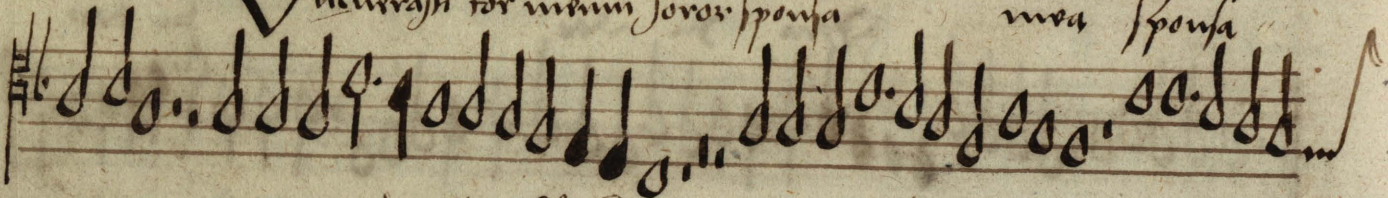 Vulnerasti cor meum soror sponsa mea sponsa